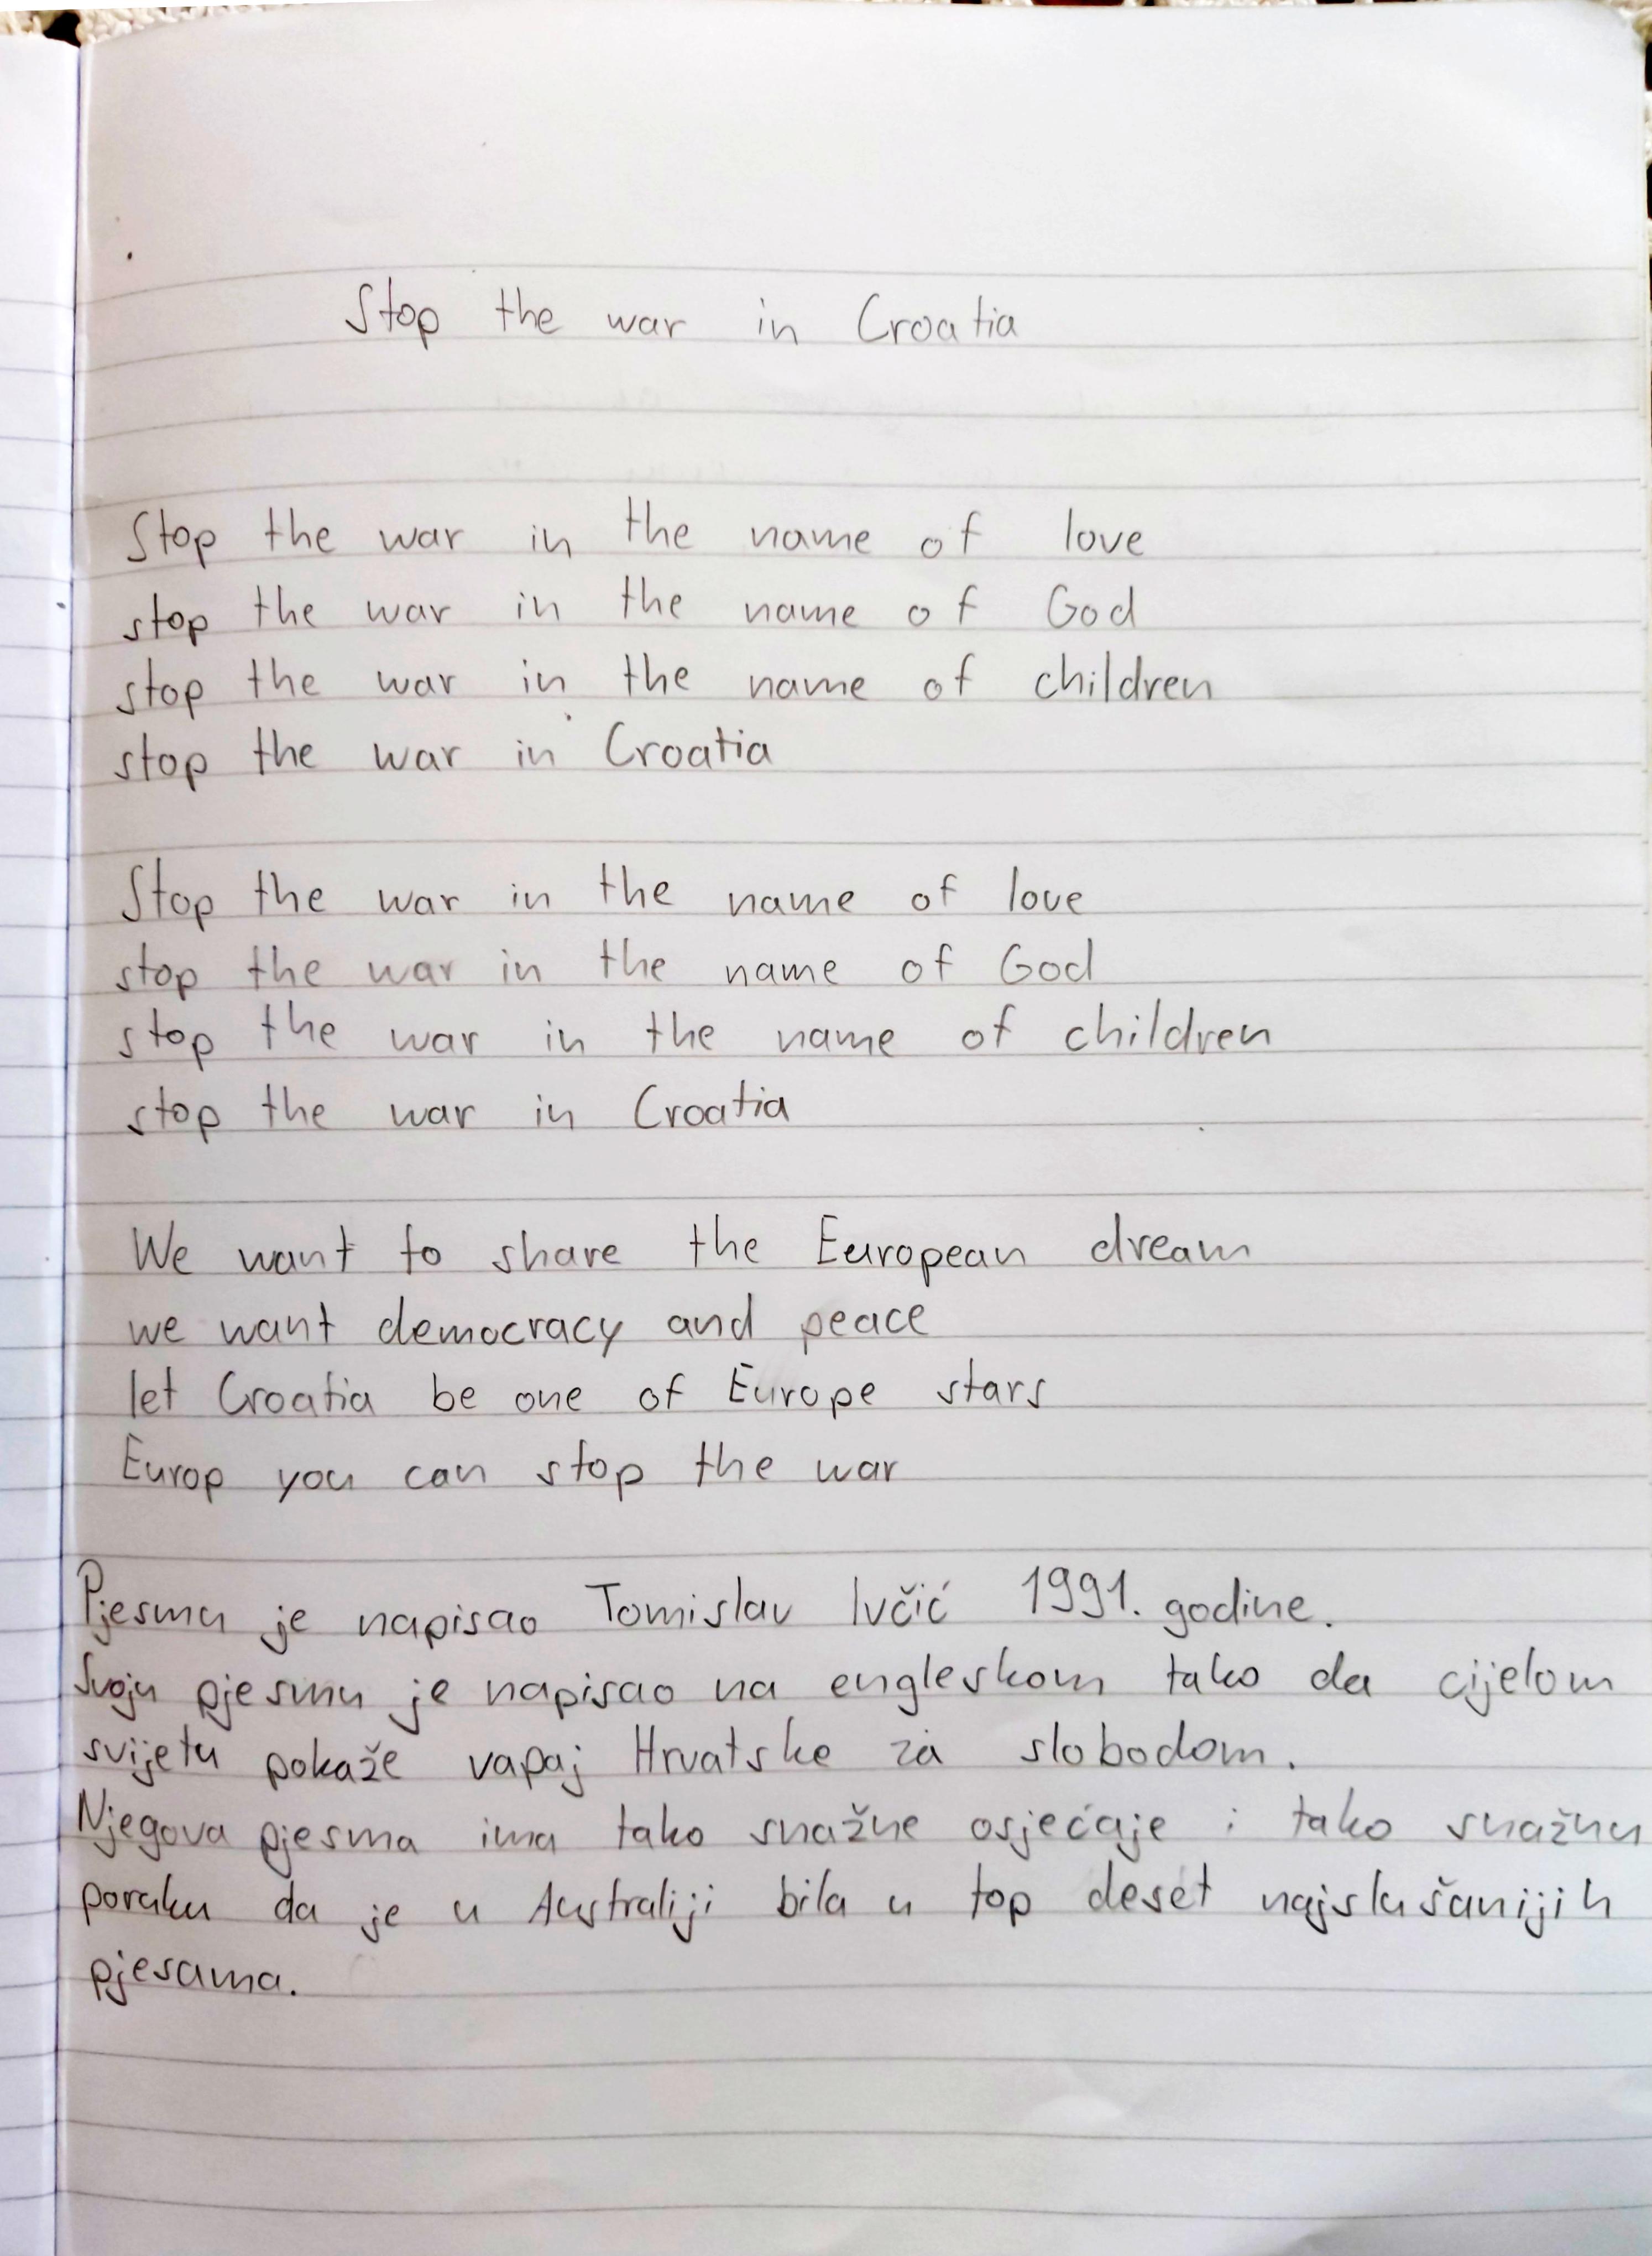 Stop the war in Croatia
Stop the war in the name of love
stop the war in the name of God
stop the war in the name of children
stop the war in Croatia
Stop the war in the name of love
stop the war in the name of God
stop the war in the name of children
stop the war in Croatia
We want to share the European dream
we want democracy and peace
let Croatia be one of Europe stars
Europ you can stop the war
Pjesmu je napisao Tomislav Ivčić 1991. godine.
Svoju pjesmu je napisao na engleskom tako da cijelom
svijetu pokaže vapaj Hrvatske za slobodom.
Njegova pjesma ima tako snažne osjećaje i tako snažnu
poruku da je u Australiji bila u top deset najslušanijih
pjesama.